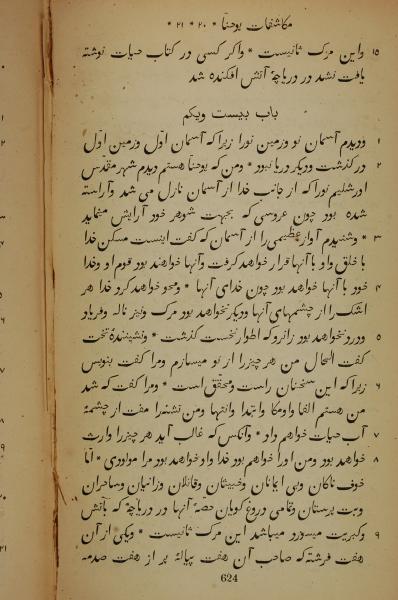 مکاشفات یوحنّا * ۲۰ * ۲۱ *
۱۵ واین مرک ثانیست * واکر کسی در کتاب حیات نوشته
یافت نشد در دریاچهٔ آتش افکنده شد
باب بیست ویکم
۱ ودیدم آسمان نو وزمین نورا زیراکه آسمان اوّل وزمین اوّل
۲ درکذشت ودیکر دریا نبود * ومن که یوحنّا هستم دیدم شهر مقدّس
اورشلیم نورا که از جانب خدا از آسمان نازل می شد وآراسته
شده بود چون عروسی که بجهت شوهر خود آرایش مینماید
۳ * وشنیدم آواز عظیمی را از آسمان که کفت اینست مسکن خدا
با خلق واو با آنها قرار خواهد کرفت وآنها خواهند بود قوم او وخدا
۴ خود با آنها خواهد بود چون خدای آنها * ومحو خواهد کرد خدا هر
اشک را از چشمهای آنها ودیکر نخواهد بود مرک ونیز ناله وفریاد
۵ ودرد نخواهد بود زانرو که اطوار نخست کذشت * ونشینندهٔ تخت
کفت الحال من هر چیزرا از نو میسازم ومرا کفت بنویس
۶ زیراکه این سخنان راست ومحقّق است * ومرا کفت که شد
من هستم الفا واومکا وابتدا وانتها ومن تشنه‌را مفت از چشمهٔ
۷ آب حیات خواهم داد * وآنکس که غالب آید هر چیزرا وارث
۸ خواهد بود ومن اورا خواهم بود خدا واو خواهد بود مرا مولودی * امّا
خوف ناکان وبی ایمانان وخبیثان وقاتلان وزانیان وساحران
وبت پرستان وتمامی دروغ کویان حصّهٔ آنها در دریاچهٔ که بآتش
۹ وکبریت میسوزد میباشد این مرک ثانیست * ویکی از آن
هفت فرشته که صاحب آن هفت پیالهٔ پر از هفت صدمهٔ
624